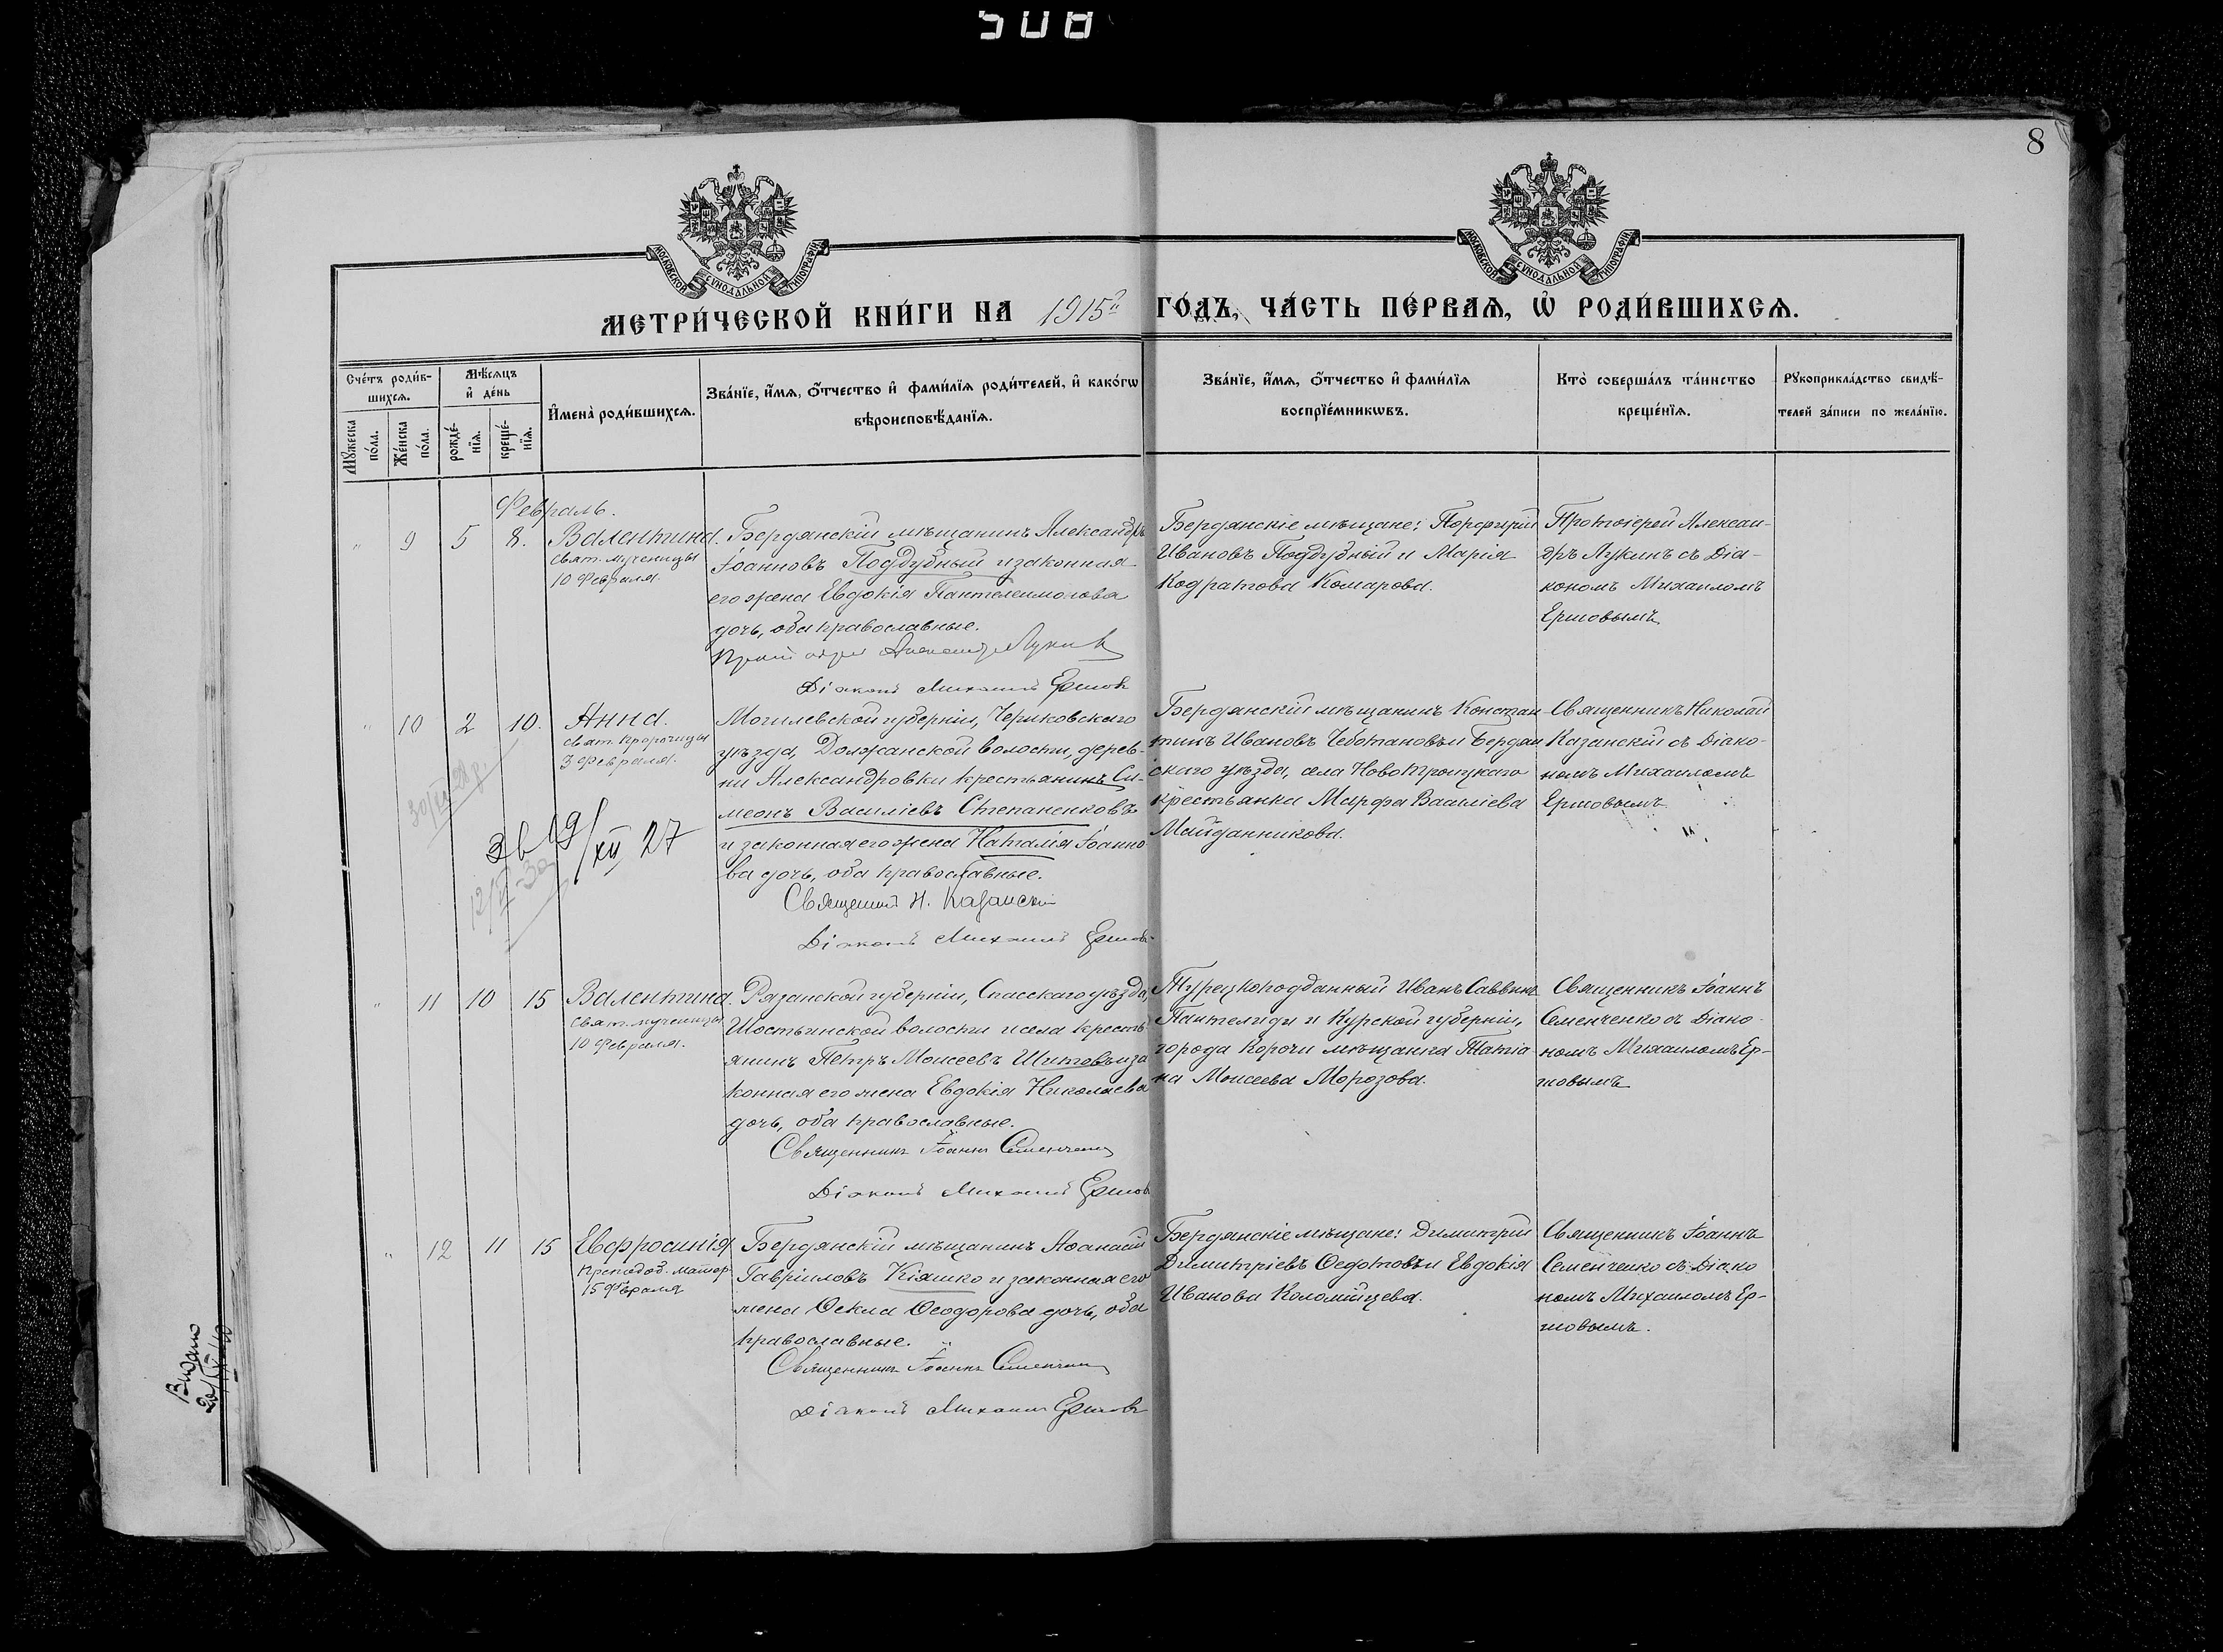 508
8
МОСКОВСКОЙ СѴНОДАЛЬНОЙ ТИПОГРАФІИ
МОСКОВСКОЙ СѴНОДАЛЬНОЙ ТИПОГРАФІИ
МЕТРИ́ЧЕСКОЙ КНИ́ГИ НА 1915й ГО́ДЪ, ЧА́СТЬ ПЕ́РВАѦ, Ѽ РОДИ́ВШИХСѦ.
Сче́тъ роди́в-
шихсѧ.
Мꙋ́жеска
по́ла.
Же́нска
по́ла.
Мѣ́сѧцъ
и҆ де́нь
рожде́-
нїѧ.
креще́-
нїѧ.
И҆мена̀ роди́вшихсѧ.
Зва́нїе, и҆́мѧ, ѻ҆́тчество и҆ фами́лїѧ роди́телей, и҆ како́гѡ
вѣроисповѣ́данїѧ.
Зва́нїе, и҆́мѧ, ѻ҆́тчество и҆ фами́лїѧ
воспрїе́мникѡвъ.
Кто̀ соверша́лъ та́инство
креще́нїѧ.
Рꙋкоприкла́дство свидѣ́-
телей за́писи по жела́нїю.
Февраль.
" 9 5 8.
Валентина.
Свят. мученицы
10 Февраля.
Бердянскій мѣщанинъ Александръ
Іоанновъ Поддубный и законная
его жена Евдокія Пантелеимонова
дочь, оба православные.
Александръ Лукинъ
Діаконъ Михаилъ Ершовъ
Бердянскіе мѣщане: Порфирій
Ивановъ Поддубный и Марія
Кодратова Комарова.
Протоіерей Алексан-
дръ Лукинъ съ Діа-
кономъ Михаиломъ
Ершовымъ.
" 10 2 10.
Анна.
Свят. Пророчицы
3 Февраля.
Могилевской губерніи, Чериковскаго
уѣзда, Должанской волости, дерев-
ни Александровки крестьянинъ Си-
меонъ Василіевъ Степаненковъ
и законная его жена Наталія Іоанно-
ва дочь, оба православные.
Священникъ Н. Казанскій
Діаконъ Михаилъ Ершовъ
Бердянскій мѣщанинъ Констан-
тинъ Ивановъ Чеботановъ и Бердян-
скаго уѣзда, села Ново Троицкаго
крестьянка Марфа Василіева
Майданникова.
Священникъ Николай
Казанскій съ Діако-
номъ Михаиломъ
Ершовымъ
19/XII 27
" 11 10 15
Валентина.
Свят. мученицы
10 Февраля.
Рязанской губерніи, Спасскаго уѣзда,
Шостьинской волости и села кресть-
янинъ Петръ Моисеевъ Шитовъ и за-
конная его жена Евдокія Николаева
дочь, оба православные.
Священникъ Іоаннъ Семенченко
Діаконъ Михаилъ Ершовъ
Турецкоподданный Иванъ Саввинъ
Пантелиди и Курской губерніи,
города Корочи мѣщанка Татіа-
на Моисеева Морозова.
Священникъ Іоаннъ
Семенченко съ Діако-
номъ Михаиломъ Ер-
шовымъ
" 12 11 15
Евфросинія
Преподоб. матер.
15 Февраля
Бердянскій мѣщанинъ Аѳанасій
Гавріиловъ Кіяшко и законная его
жена Ѳекла Ѳеодорова дочь, оба
православные.
Священникъ Іоаннъ Семенченко
Діаконъ Михаилъ Ершовъ
Бердянскіе мѣщане: Димитрій
Димитріевъ Ѳедотовъ и Евдокія
Иванова Коломійцева.
Священникъ Іоаннъ
Семенченко съ Діако
номъ Михаиломъ Ер-
шовымъ.
Видано
20/IX 40